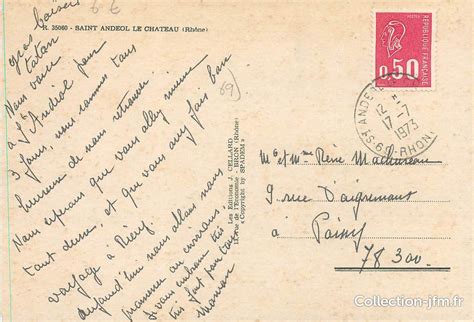 R. 35060 - SAINT ANDEOL LE CHATEAU (Rhône)
gros baisers
tatan
Nous voici
à St Andéol pour
3 jours, nous sommes tous
heureux de nous retrouver.
Nous espérons que vous allez mieux
tout deux, et que vous avez fait bon
voyage à
aujourd'hui nous allons nous
promener au environs
très
fait pour tous
maman
69)
Les Editions J. CELLARD
de l'Economie - BRON (Rhône)
Copyright by SPADEM
REPUBLIQUE FRANÇAISE
0,50
ST ANDEOL
12 H
17-7
1973
69-RHONE
M. et Mme René
9 rue d'aigremont
à Poissy
78300.
Collection-jfm.fr